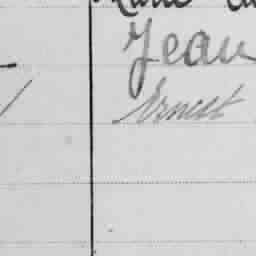 Jean
Ernest